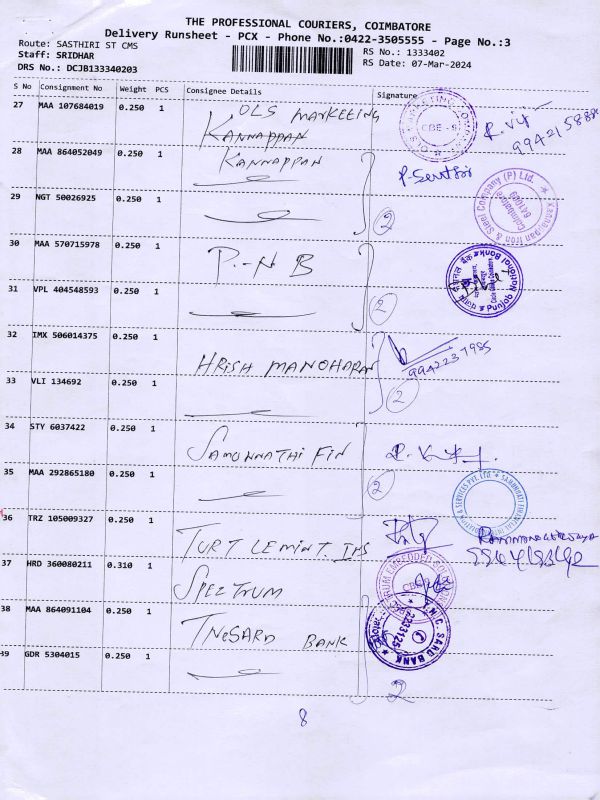 THE PROFESSIONAL COURIERS, COIMBATORE
Delivery Runsheet - PCX - Phone No.:0422-3505555 - Page No.:3
Route: SASTHIRI ST CMS
Staff: SRIDHAR
DRS No.: DCJB133340203
RS No.: 1333402
RS Date: 07-Mar-2024
S No Consignment No Weight PCS Consignee Details Signature
27 MAA 107684019 0.250 1 OLS MARKETING
KANNAPPAN
CBE - 9
28 MAA 864052049 0.250 1 KANNAPPAN
29 NGT 50026925 0.250 1
2
Kannappan Iron & Steel Company (P) Ltd.
Coimbatore
641009
30 MAA 570715978 0.250 1 P.N B
Punjab National Bank
31 VPL 404548593 0.250 1
2
32 IMX 506014375 0.250 1 HRISH MANOHARAN
9942237985
33 VLI 134692 0.250 1
2
34 STY 6037422 0.250 1 SAMUNNATHI FIN
35 MAA 292865180 0.250 1
2
36 TRZ 105009327 0.250 1 TURTLEMINT. INS
37 HRD 360080211 0.310 1 SPECTRUM
38 MAA 864091104 0.250 1 TNCSARD BANK
T.N.C. SARD BANK
2233125
39 GDR 5304015 0.250 1
2
8